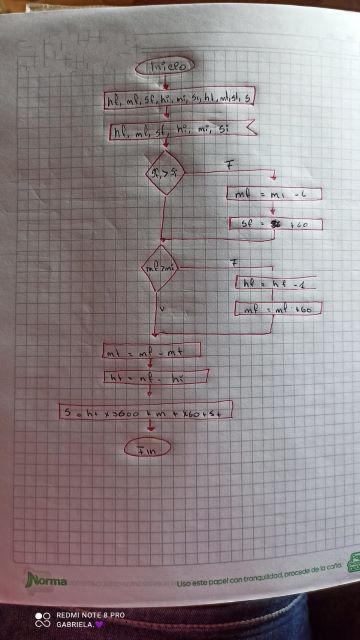 Inicio
hf, mf, sf, hi, mi, si, ht, mt, st, s
hf, mf, sf, hi, mi, si
F
mf = mi - 1
sf = + 60
mf > mi
F
hf = hf - 1
V
mf = mf + 60
mt = mf - mt
ht = hf - hi
S = ht x 3600 + m + x60 + St
Fin
Norma
Uso este papel con tranquilidad, procede de la caña.
REDMI NOTE 8 PRO
GABRIELA.💜